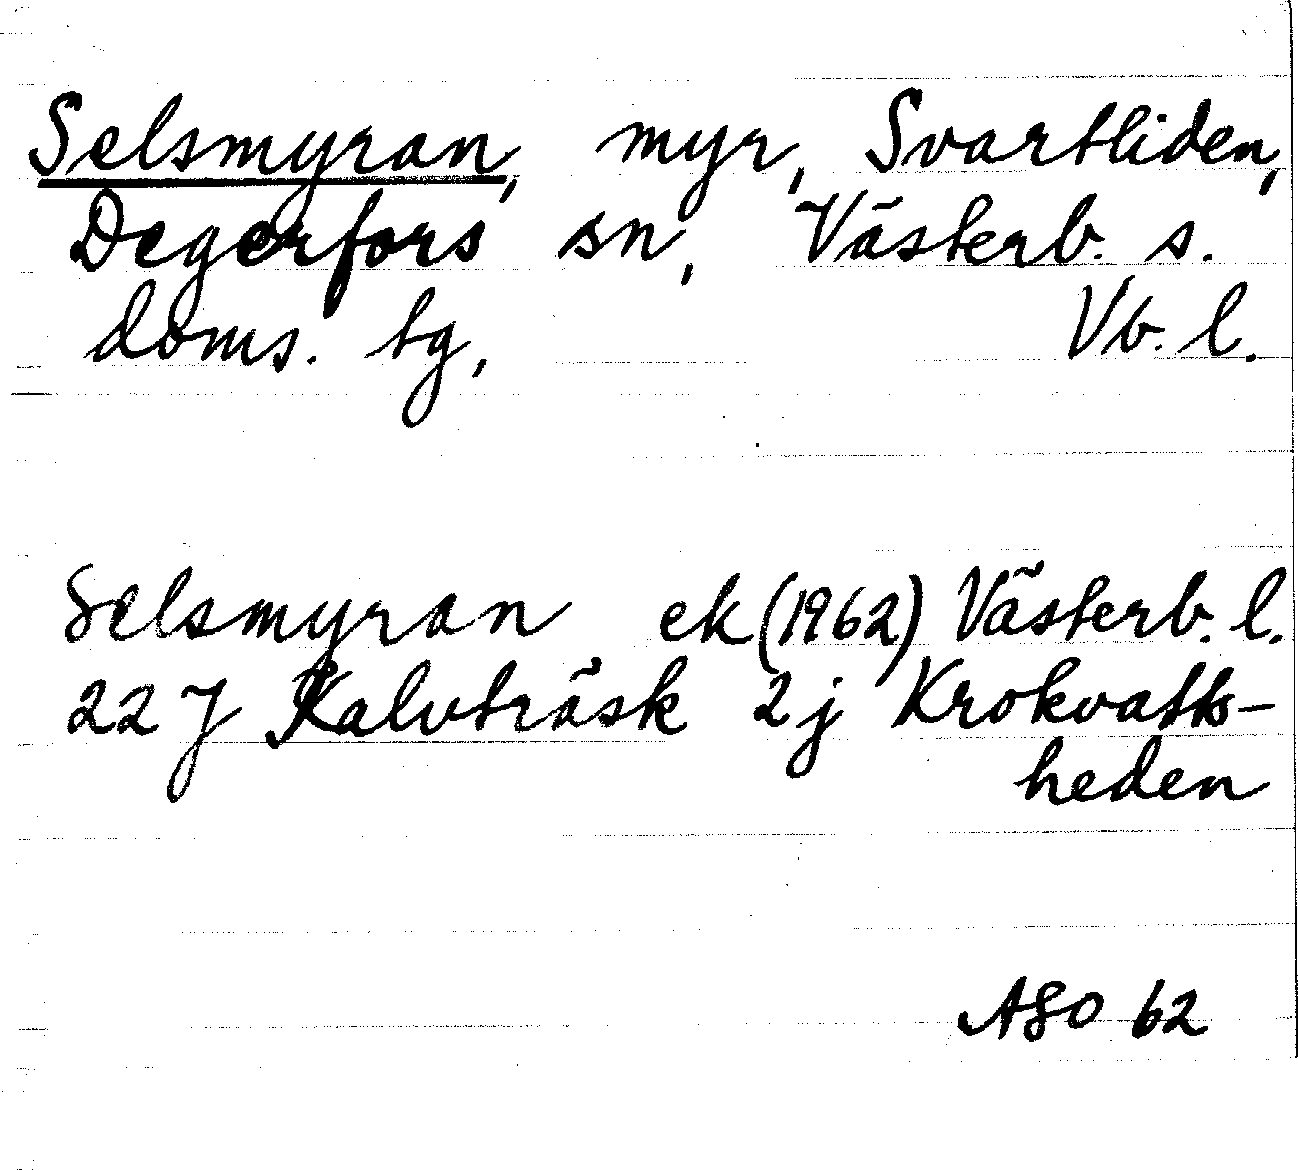 Selsmyran, myr, Svartliden,
Degerfors sn, Västerb. s.
doms. tg, Vb. l.
Selsmyran ek (1962) Västerb. l.
22 J Kalvträsk 2 j Krokvatts-
heden
ASO 62